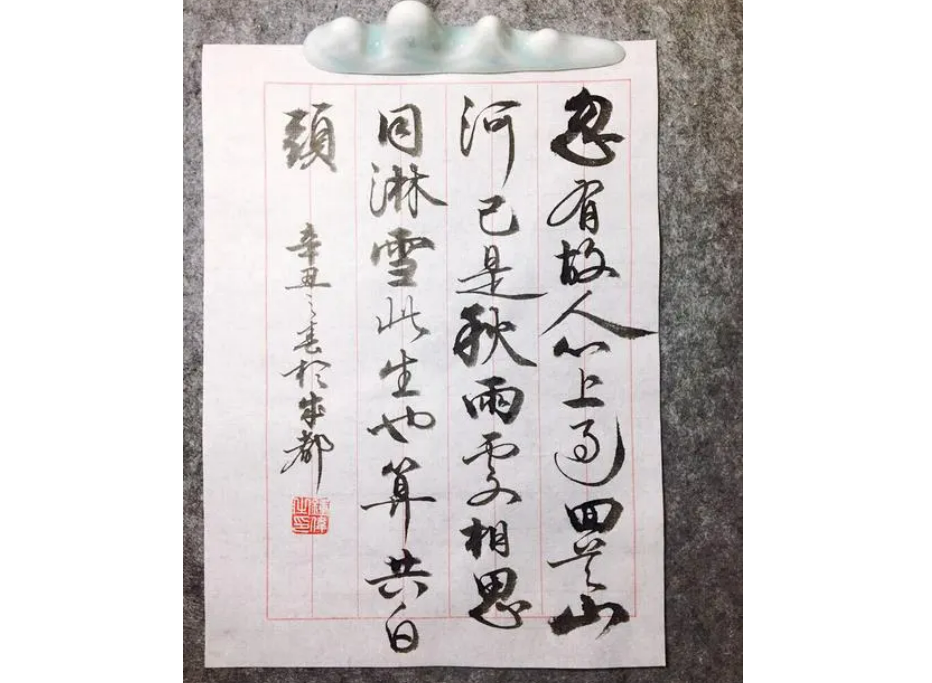 忽有故人心上過回首山
河已是秋兩處相思
同淋雪此生也算共白
頭
辛丑之春於成都